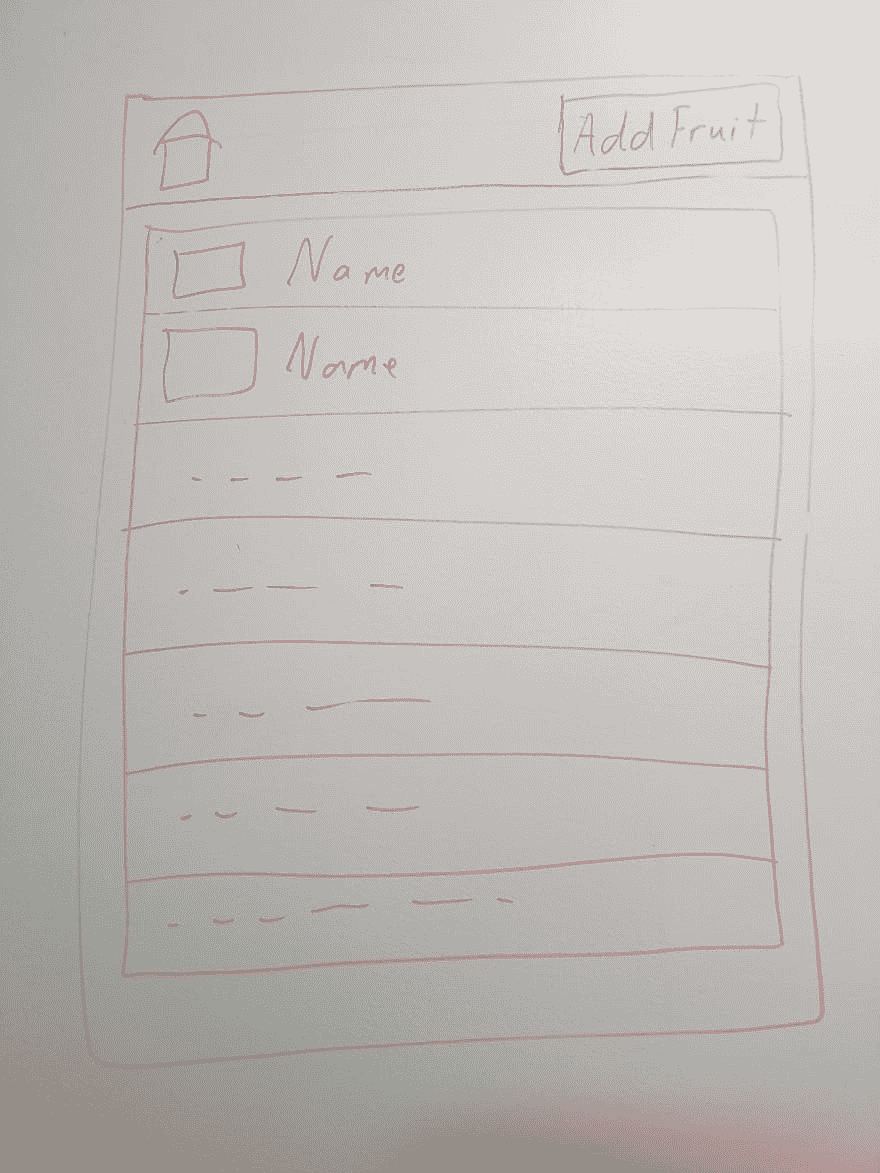 Add Fruit
Name
Name